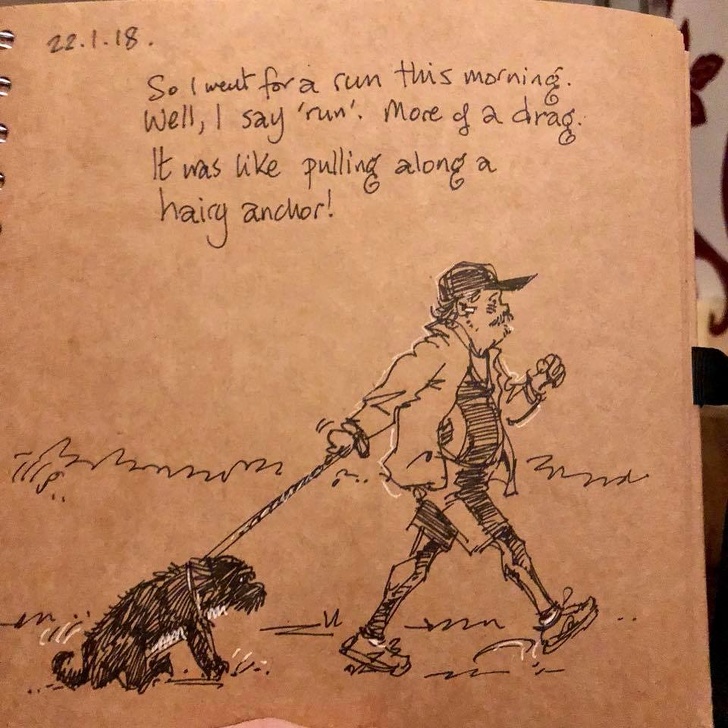 22.1.18.
So I went for a run this morning.
Well, I say 'run'. More of a drag.
It was like pulling along a
hairy anchor!